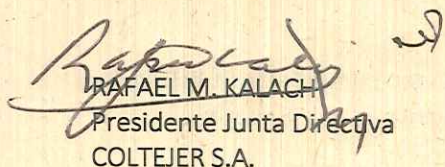 RAFAEL M. KALACH
Presidente Junta Directiva
COLTEJER S.A.